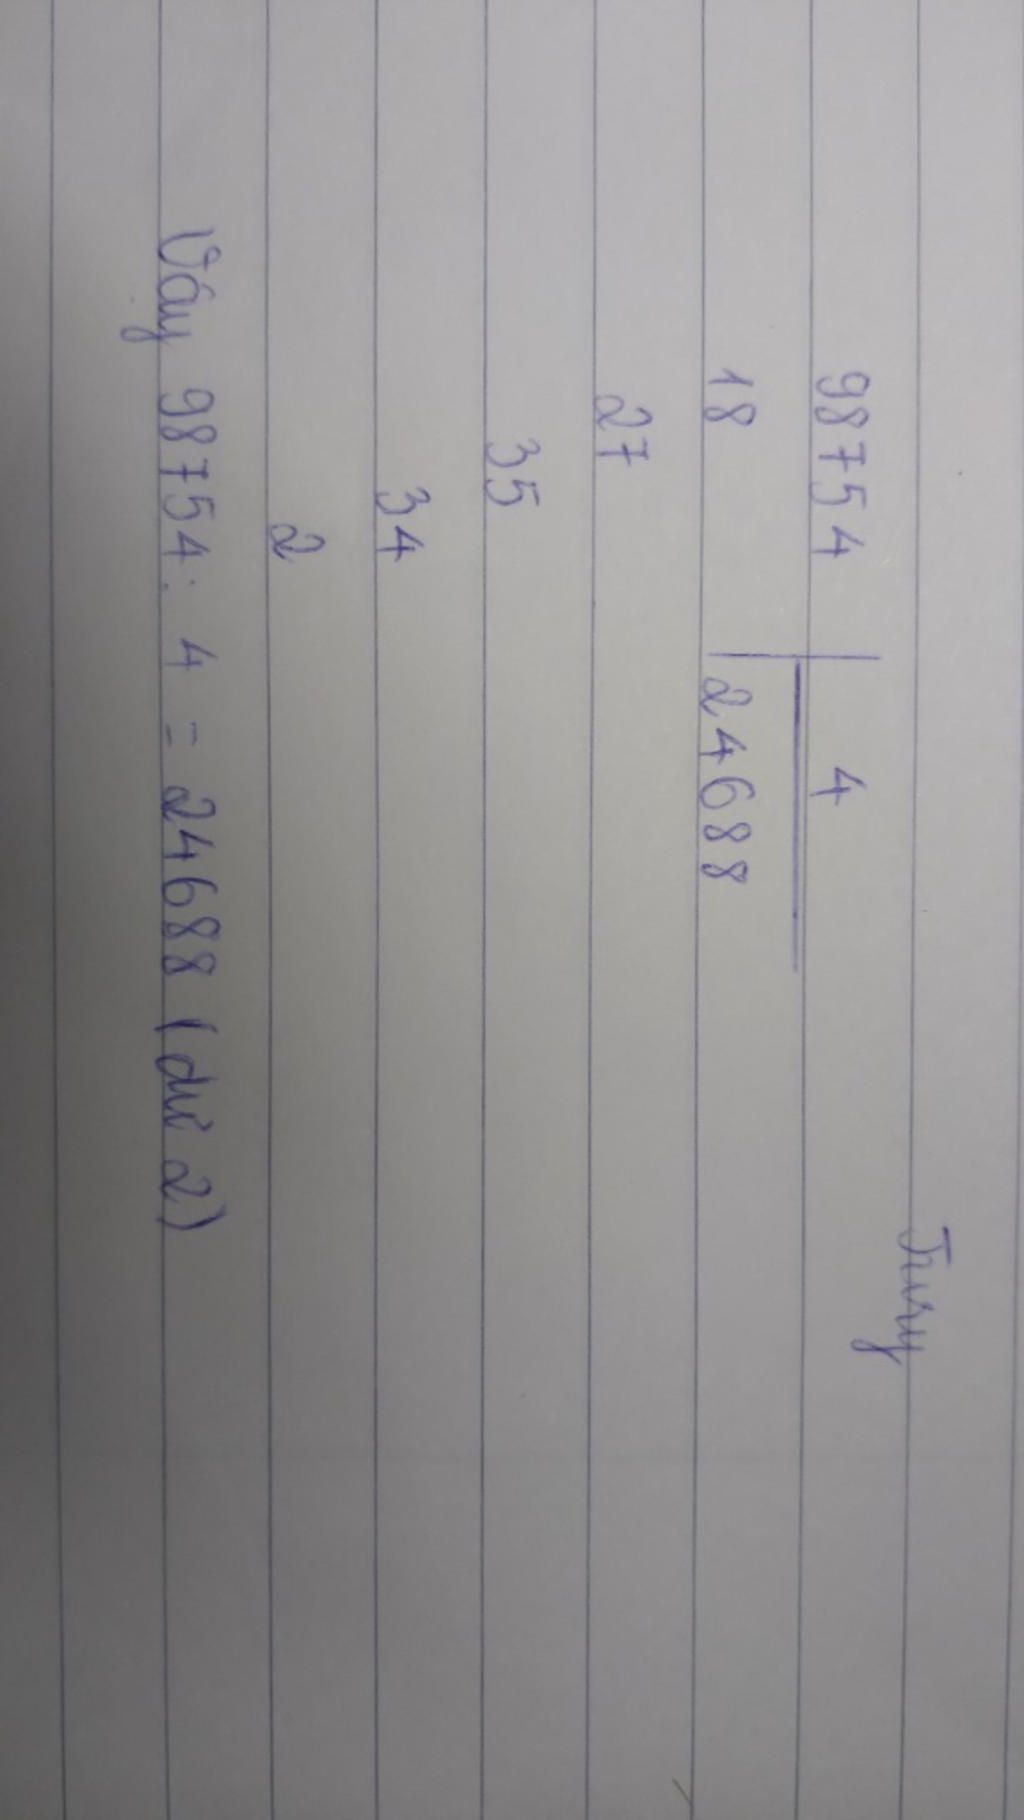 98754 | 4
18 | 24688
27
35
34
2
Vậy 98754 : 4 = 24688 (dư 2)